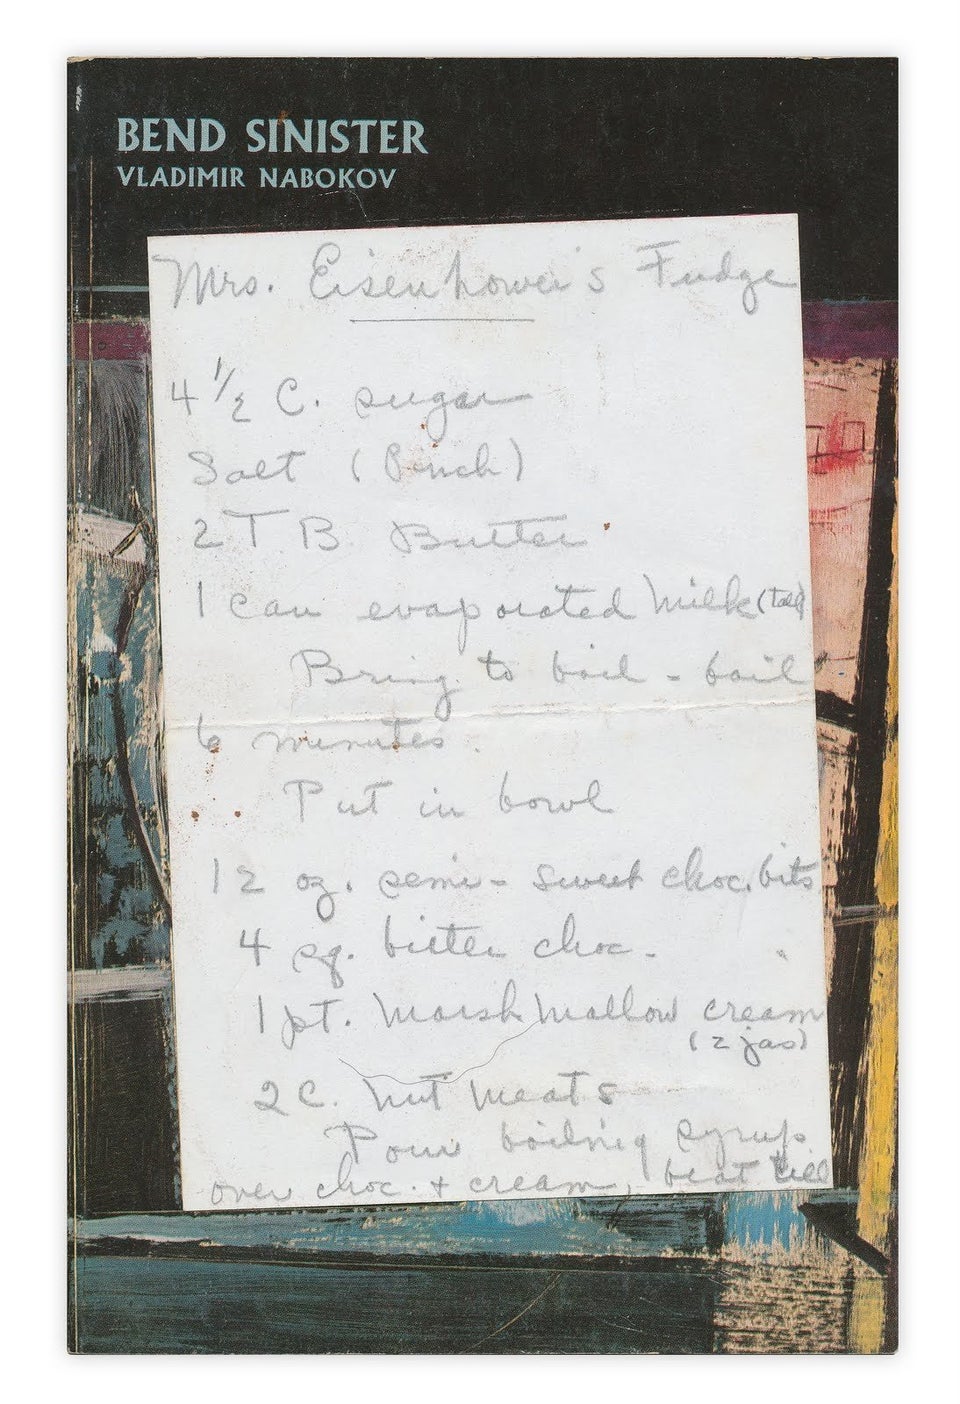 BEND SINISTER
VLADIMIR NABOKOV
Mrs. Eisenhower's Fudge
4 1/2 C. sugar
Salt (Pinch)
2 TB Butter
1 can evaporated Milk (tall)
Bring to boil - boil
6 minutes.
Put in bowl
12 oz. semi-sweet choc. bits
4 sq. bitter choc.
1 pt. Marshmallow cream
(2 jas)
2 C. nut meats
Pour boiling syrup
over choc. + cream, beat till